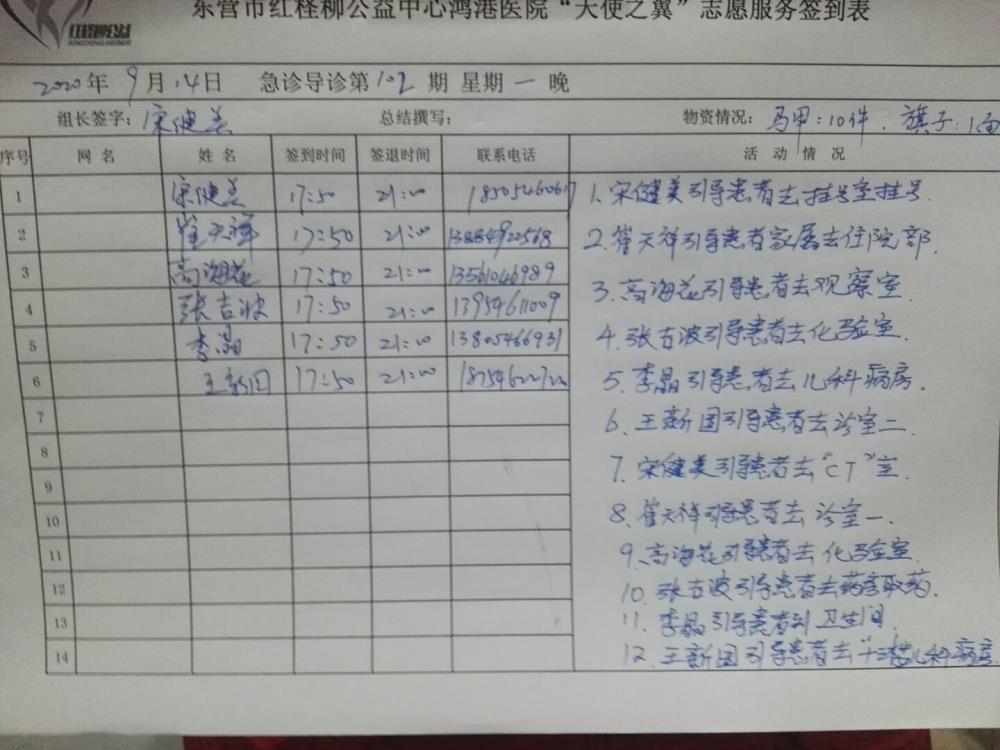 东营市红柽柳公益中心鸿港医院“天使之翼”志愿服务签到表
2020年 9月 14日 急诊导诊第102期 星期一晚
组长签字: 宋健美 总结撰写: 物资情况: 马甲:10件、旗子:1面
序号 网名 姓名 签到时间 签退时间 联系电话 活动情况
1 宋健美 17:50 21:00 18505460617
2 崔天祥 17:50 21:00 13884922568
3 高海花 17:50 21:00 13561046989
4 张吉波 17:50 21:00 13954611009
5 李晶 17:50 21:00 13805466931
6 王新国 17:50 21:00
7
8
9
10
11
12
13
14
1、宋健美引导患者去挂号室挂号.
2、崔天祥引导患者家属去住院部.
3、高海花引导患者去观察室.
4、张吉波引导患者去化验室.
5、李晶引导患者去儿科病房.
6、王新国引导患者去诊室二.
7、宋健美引导患者去“CT”室.
8、崔天祥引导患者去诊室一.
9、高海花引导患者去化验室.
10、张吉波引导患者去药房取药.
11、李晶引导患者到卫生间.
12、王新国引导患者去十三楼儿科病房